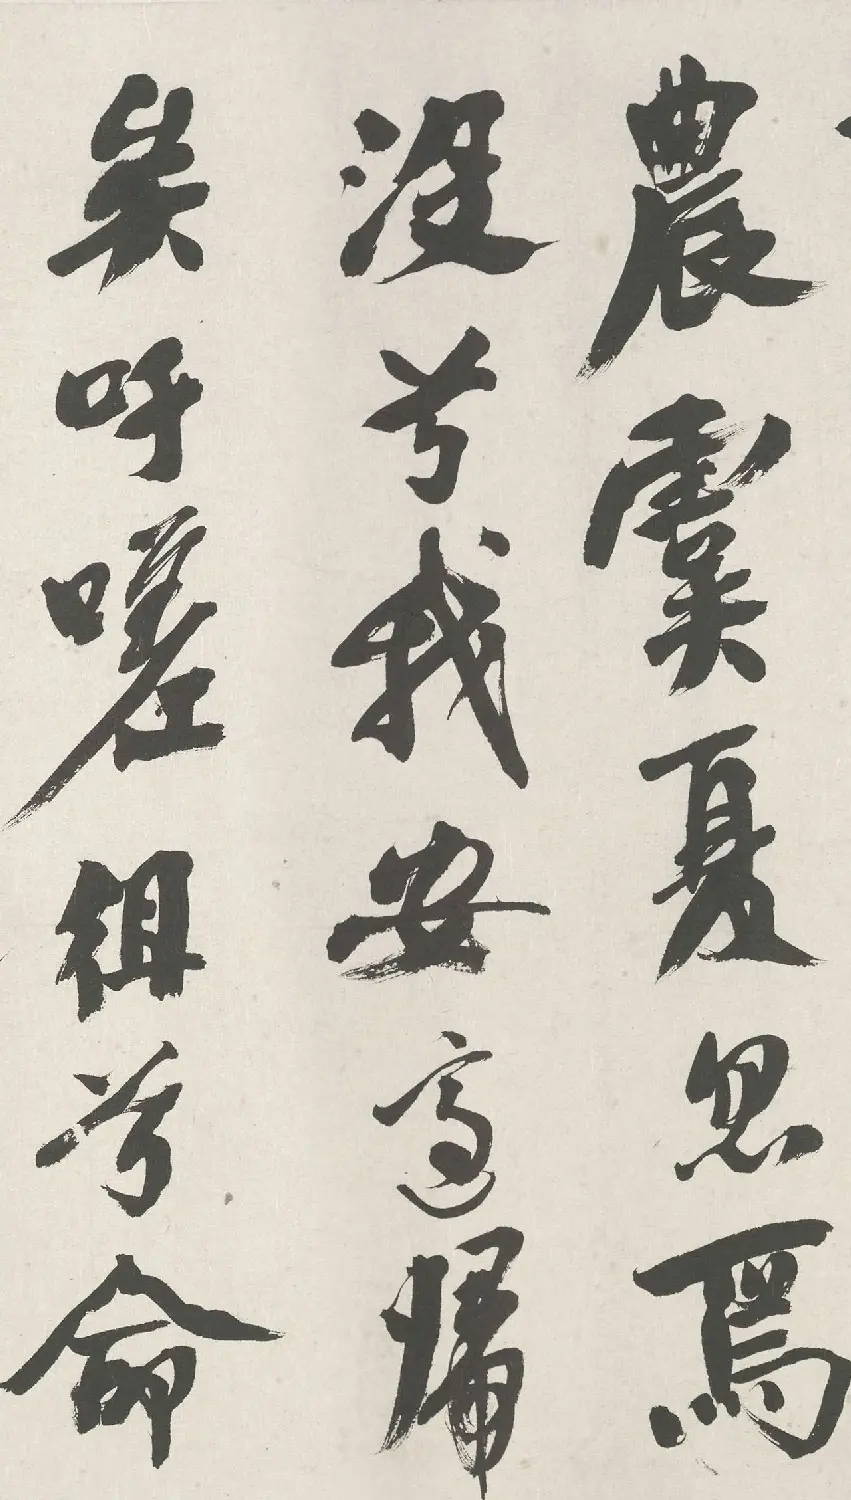 農虞夏忽焉
沒兮我安適歸
矣呼嗟徂兮命